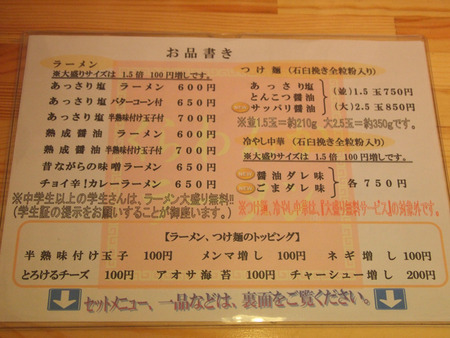 お品書き
ラーメン
※大盛りサイズは 1.5倍 100円増しです。
あっさり塩 ラーメン 600円
あっさり塩 バターコーン付 650円
あっさり塩 半熟味付け玉子付 700円
熟成醤油 ラーメン 600円
熟成醤油 半熟味付け玉子付 700円
昔ながらの味噌ラーメン 650円
チョイ辛!カレーラーメン 650円
※中学生以上の学生さんは、ラーメン大盛り無料!!
(学生証の提示をお願いすることが御座います。)
つけ麺 (石臼挽き全粒粉入り)
あっさり塩
とんこつ醤油
サッパリ醤油
(並)1.5玉750円
(大)2.5玉850円
※並1.5玉=約210g 大2.5玉=約350gです。
冷やし中華 (石臼挽き全粒粉入り)
※大盛りサイズは 1.5倍 100円増しです。
醤油ダレ味
ごまダレ味
各750円
※つけ麺、冷やし中華は、『大盛り無料サービス』の対象外です。
【ラーメン、つけ麺のトッピング】
半熟味付け玉子 100円 メンマ増し 100円 ネギ増し 100円
とろけるチーズ 100円 アオサ海苔 100円 チャーシュー増し 200円
セットメニュー、一品などは、裏面をご覧ください。